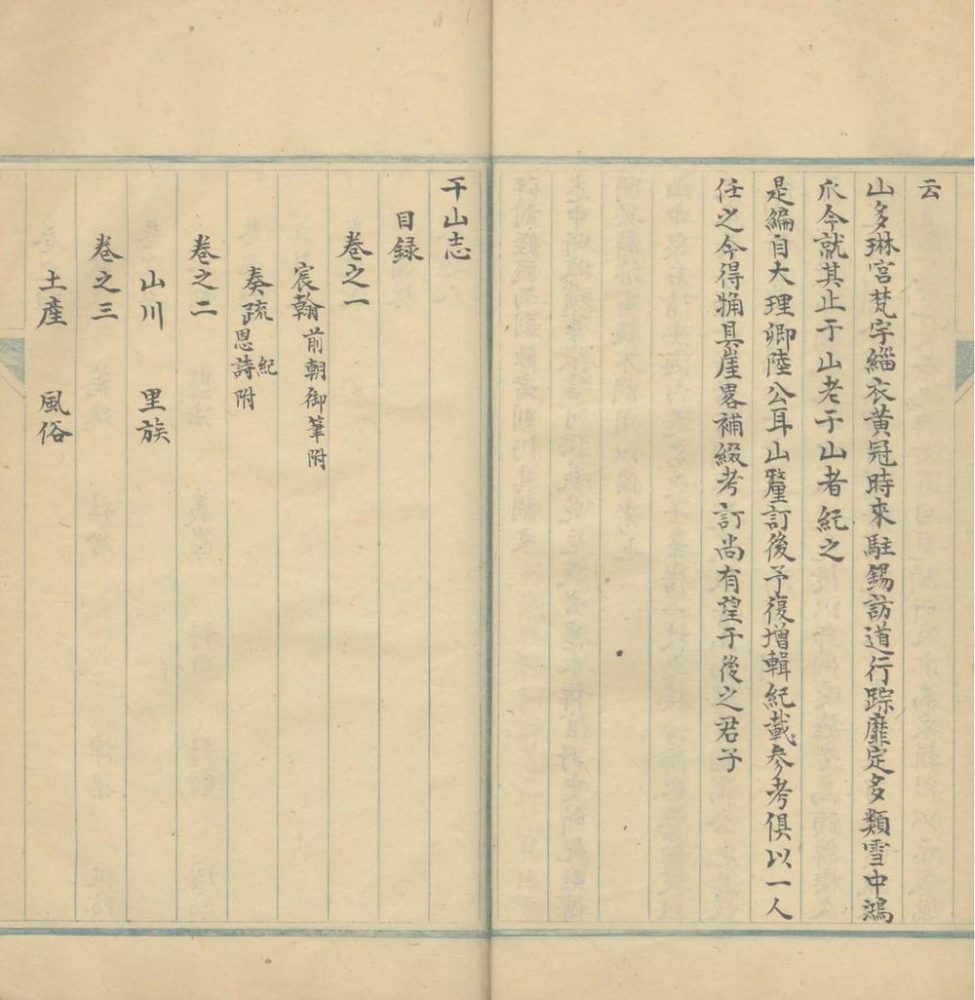 云
山多琳宮梵宇緇衣黄冠時來駐錫訪道行踪靡定多類雪中鴻
爪今就其止于山老于山者紀之
是編自大理卿陸公耳山釐訂後予復增輯紀載參考俱以一人
任之今得捅具崖畧補綴考訂尚有望于後之君子
干山志
目録
卷之一
宸翰 前朝御筆附
奏疏 紀恩詩附
卷之二
山川 里族
卷之三
土產 風俗